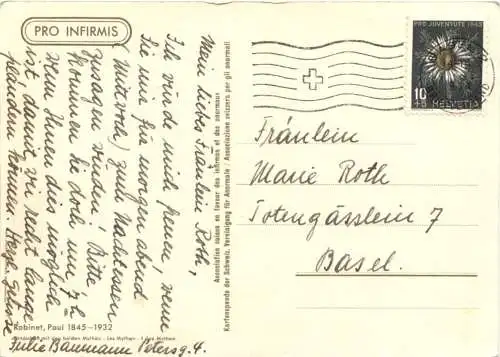 PRO INFIRMIS
Mein liebes Fräulein Roth,
Ich würde mich freuen, wenn
Sie mir für morgen abend
(Mittwoch) zum Nachtessen
zusagen würden. Bitte
kommen Sie doch um 7 h
wenn Ihnen dies möglich
ist, damit wir recht lange
plaudern können. Herzl. Grüsse
Julie Baumann Petersg. 4.
Robinet, Paul 1845-1932
Landschaft mit den beiden Mythen - Les Mythen - I due Mythen
Association suisse en faveur des infirmes et des anormaux / Associazione svizzera per gli anormali
Kartenspende der Schweiz. Vereinigung für Anormale
PRO JUVENTUTE 1943
10
+5 HELVETIA
Fräulein
Marie Roth
Totengässlein 7
Basel.